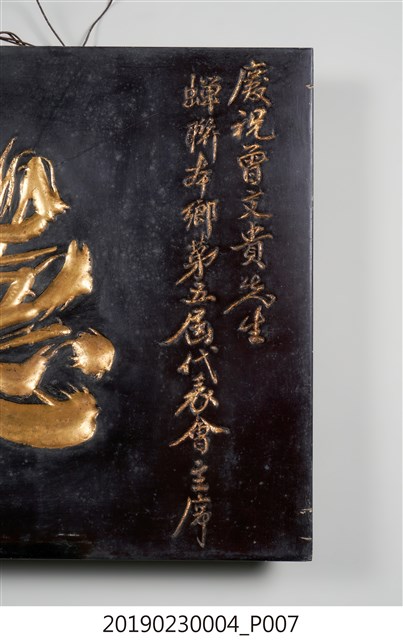 慶祝曾文貴先生
蟬聯本鄉第五屆代表會主席
20190230004_P007